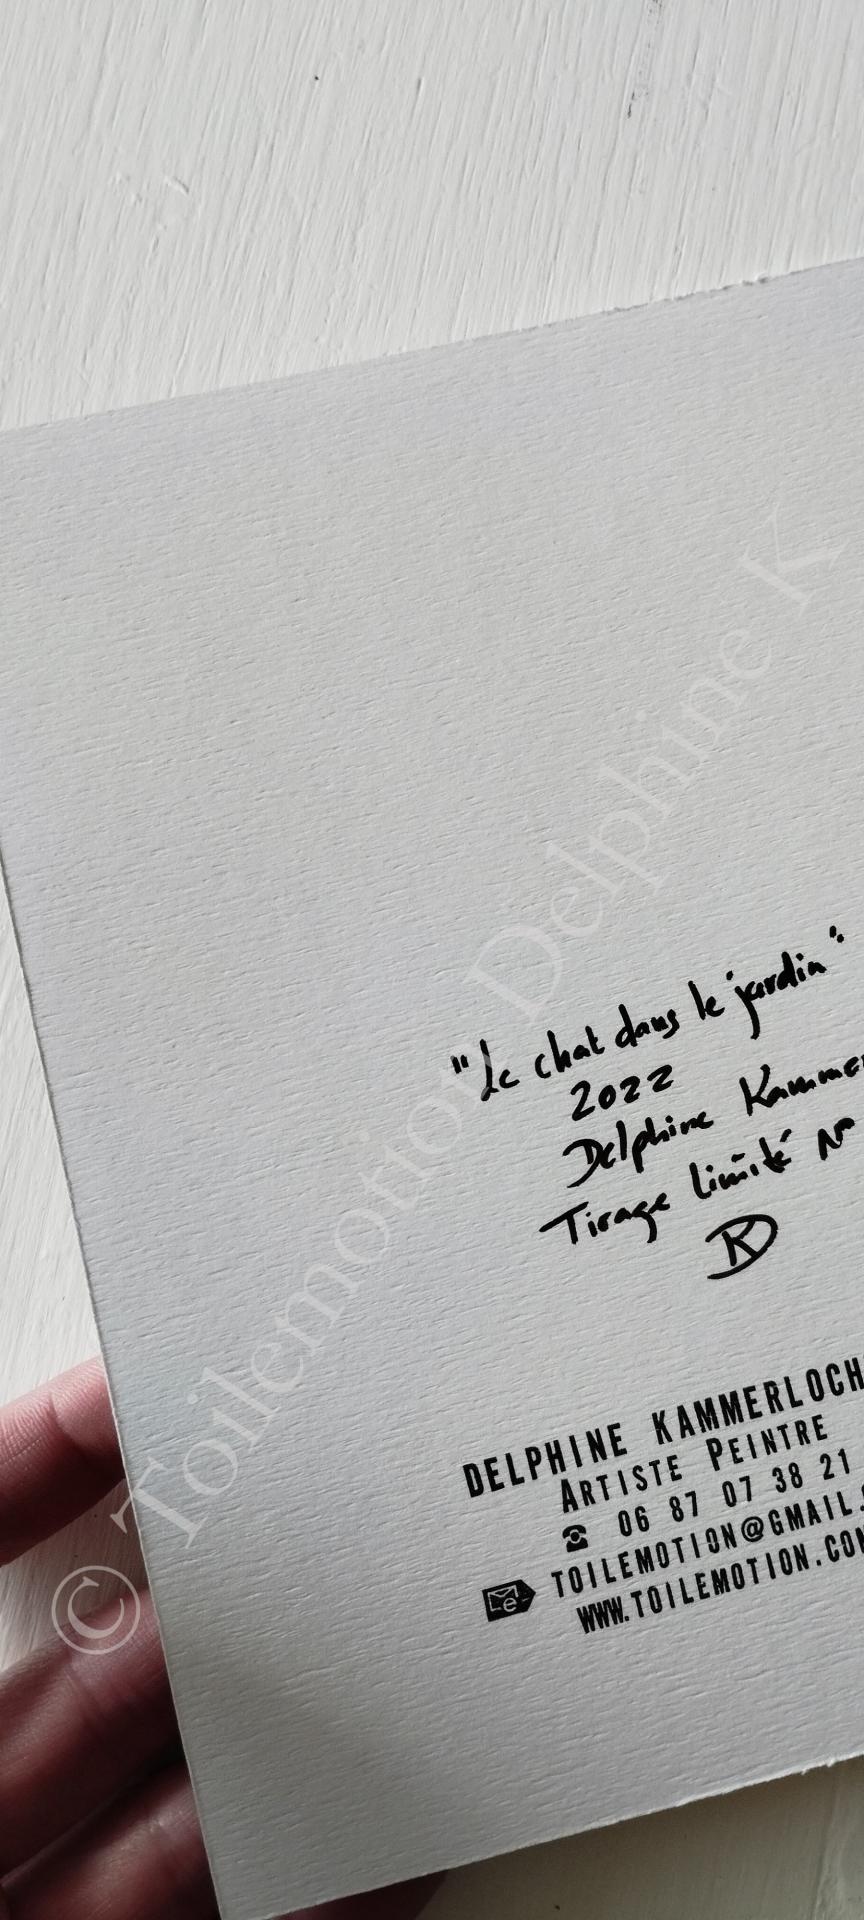 "Le chat dans le jardin"
2022
Delphine Kammer
Tirage limité N°
DK
DELPHINE KAMMERLOCH
ARTISTE PEINTRE
06 87 07 38 21
TOILEMOTION@GMAIL.
WWW.TOILEMOTION.COM
© Toilemotion Delphine K